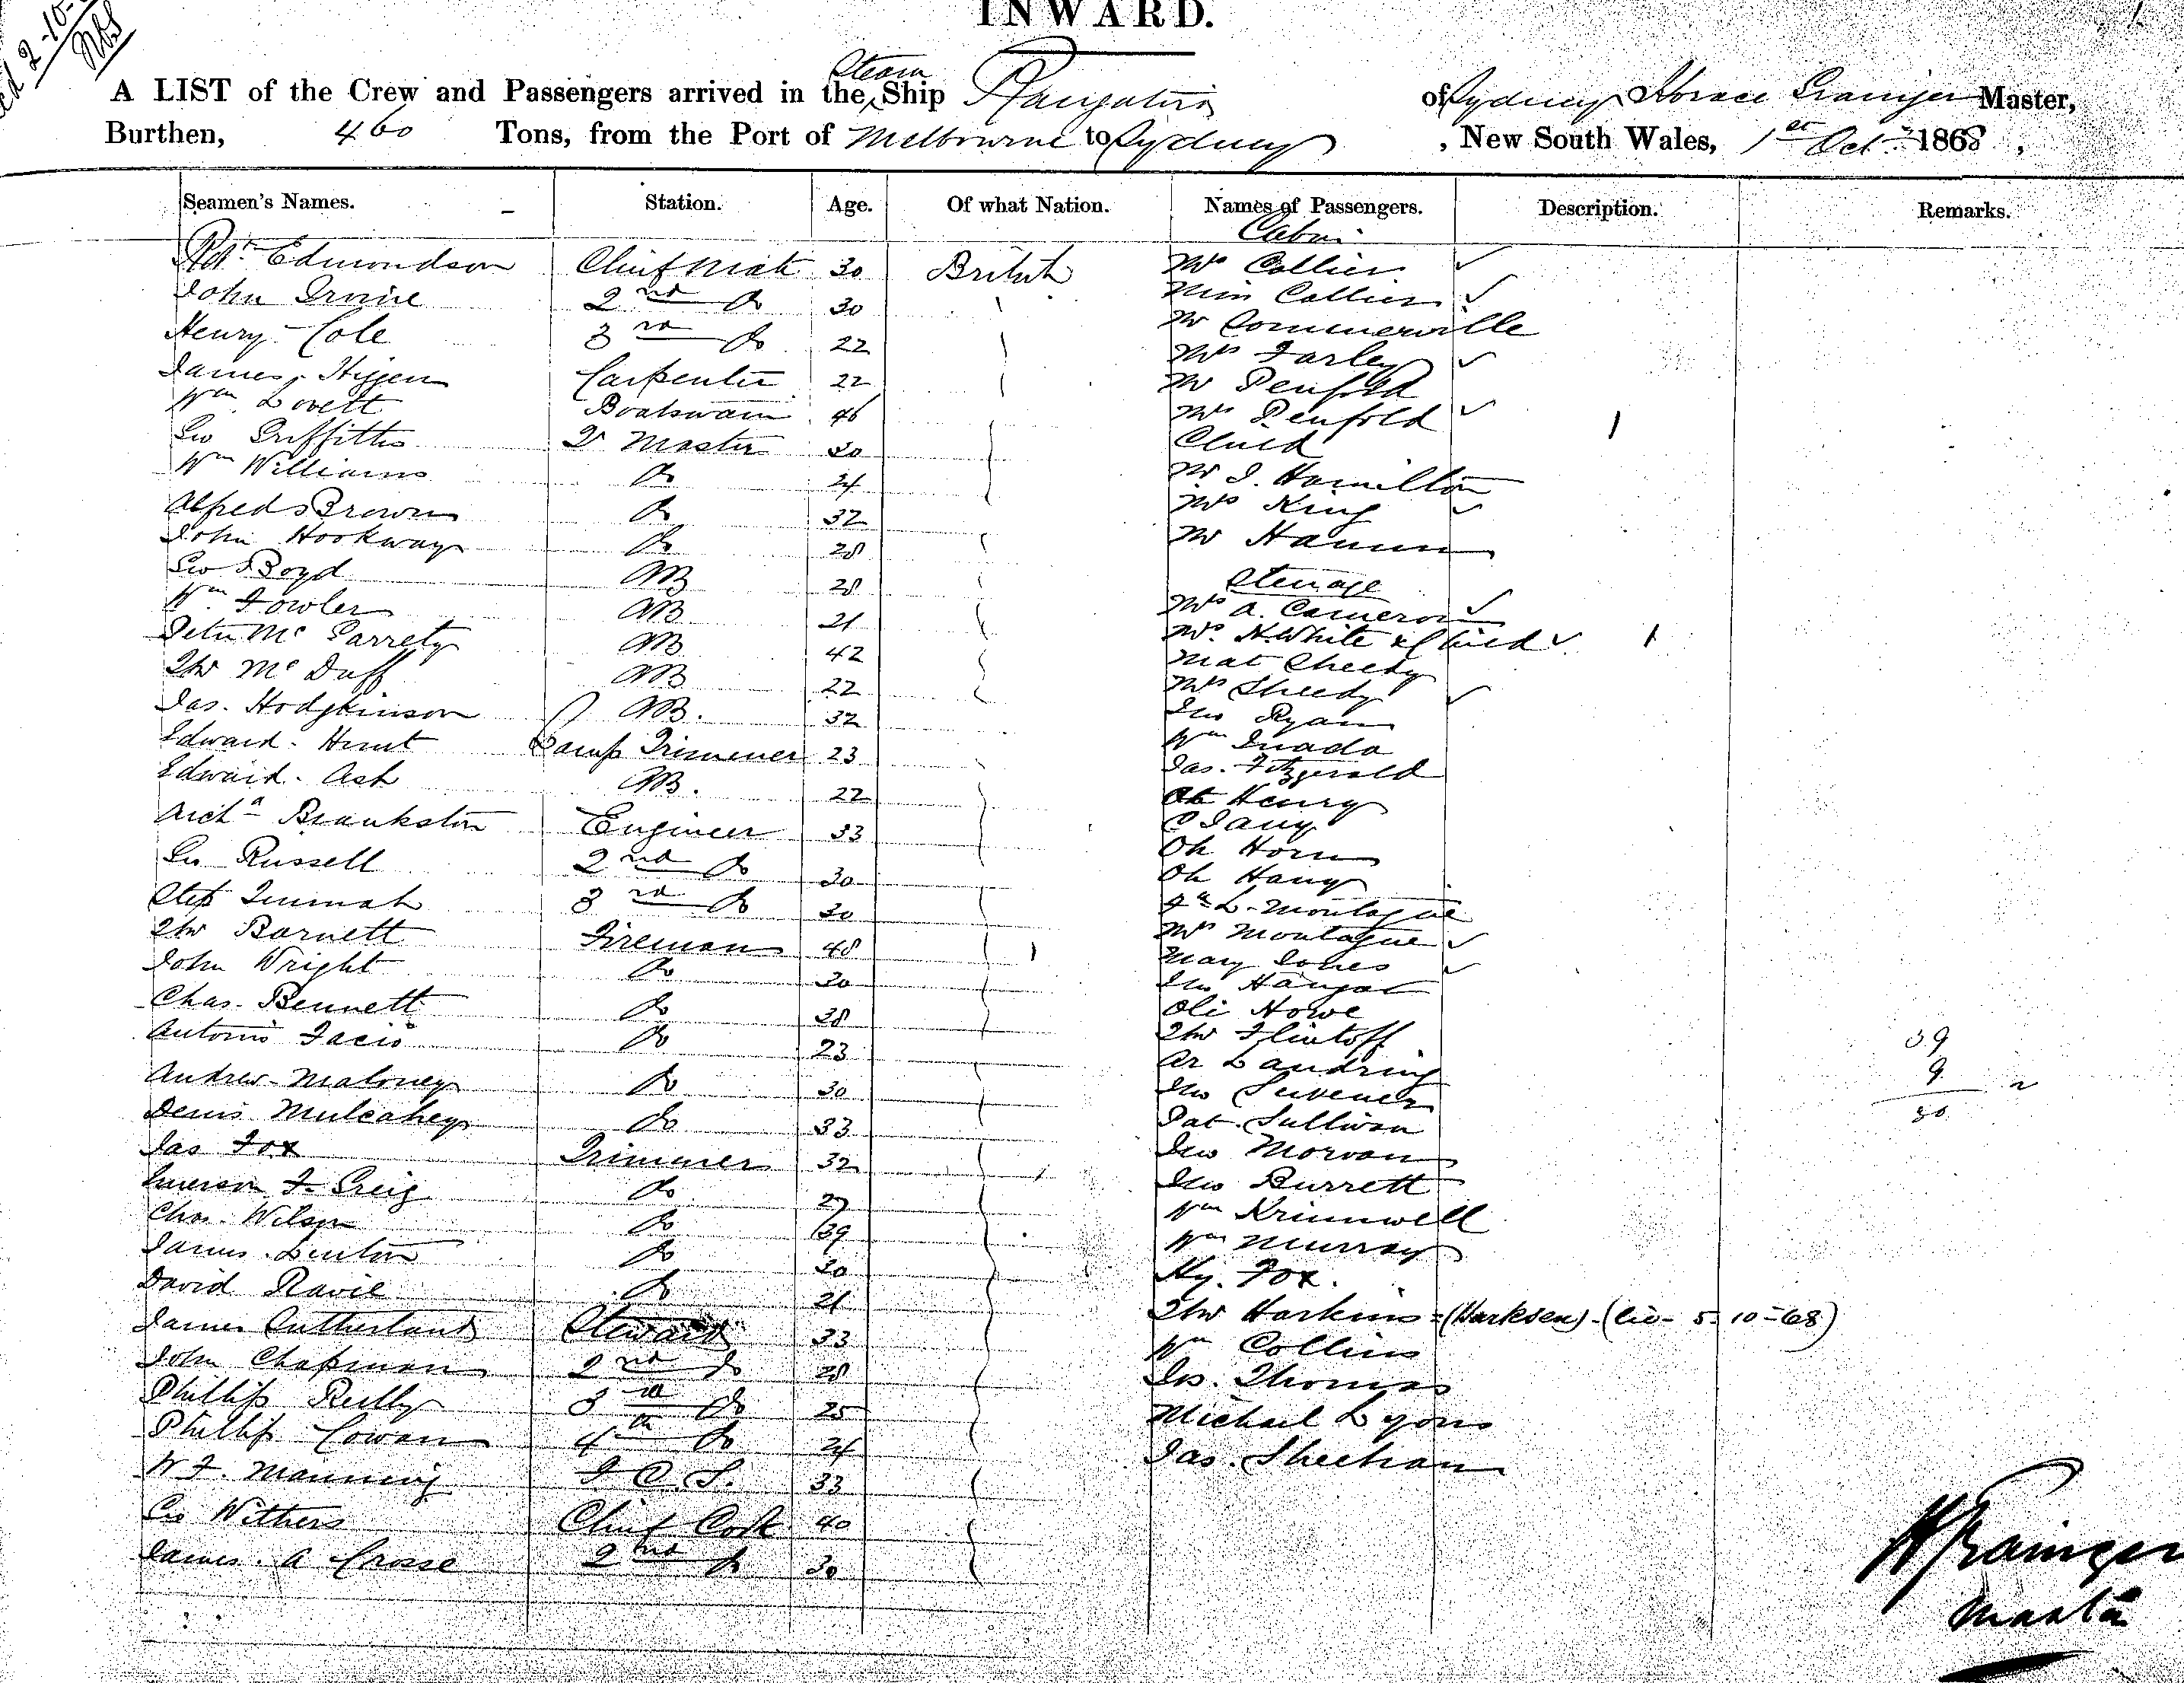 INWARD.
2-10-
A LIST of the Crew and Passengers arrived in the Steam Ship Rangatira of Sydney Horace Grainger Master,
Burthen, 460 Tons, from the Port of Melbourne to Sydney, New South Wales, 1st Oct. 1868,
Seamen's Names. Station. Age. Of what Nation. Names of Passengers. Description. Remarks.
Cabin
Robt. Edmondson Chief Mate 30 British Mrs Collier
John Irvine 2nd Do 30 Miss Collier
Henry Cole 3rd Do 22 Mr Sommerville
James Carpenter 22 Mrs Farley
Wm Lovett Boatswain 46 Mr Penfold
Geo Griffiths Qr Master 30 Mrs Penfold
Wm Williams Do 24 Child
Alfred Brown Do 32 Mr J. Hamilton
John Hookway Do 28 Mrs King
Geo Boyd AB 28 Mr
Steerage
Wm Fowler AB 21 Mrs A. Cameron
Peter Mc Garrety AB 42 Mrs. H. White & Child
Thos Mc Duff AB 22 Mat Sheedy
Jas. Hodgkinson AB. 32 Mrs Sheedy
Edward Hunt Lamp Trimmer 23 Jno Ryan
Edward Ash AB. 22 Wm
Archd Brankston Engineer 33 Jas. Fitzgerald
Geo Russell 2nd Do 30 Ah Henry
Step 3rd Do 30
Thos Barnett Fireman 48 Oh Horn
John Wright Do 30 Oh Hang
Chas. Bennett Do 38 L. Montague
Antonio Facio Do 23 Mrs Montague
Andrew Maloney Do 30 Mary Jones
Denis Mulcahey Do 33 Jno
Jas Fox Trimmer 32 Oli Howe
F. Greig Do 27 Thos Flintoff
Chas. Wilson Do 39 Ar Landring
James Linton Do 30 Jno
David Do 21 Pat Sullivan
James Sutherland Steward 33 Jno Morvan
John Chapman 2nd Do 28 Jno Burrett
Phillip Reilly 3rd Do 25 Wm Krimwell
Phillip Cowan 4th Do 24 Wm Murray
W F. Manning 33 Hy. Fox.
Geo Withers Chief Cook 40 Thos Harkins = (Harksen) - (5-10-68)
James A Crosse 2nd Do 30 Wm Collins
Jos. Thomas
Michael Lyons
Jas. Sheehan
39
9
H Grainger
Master